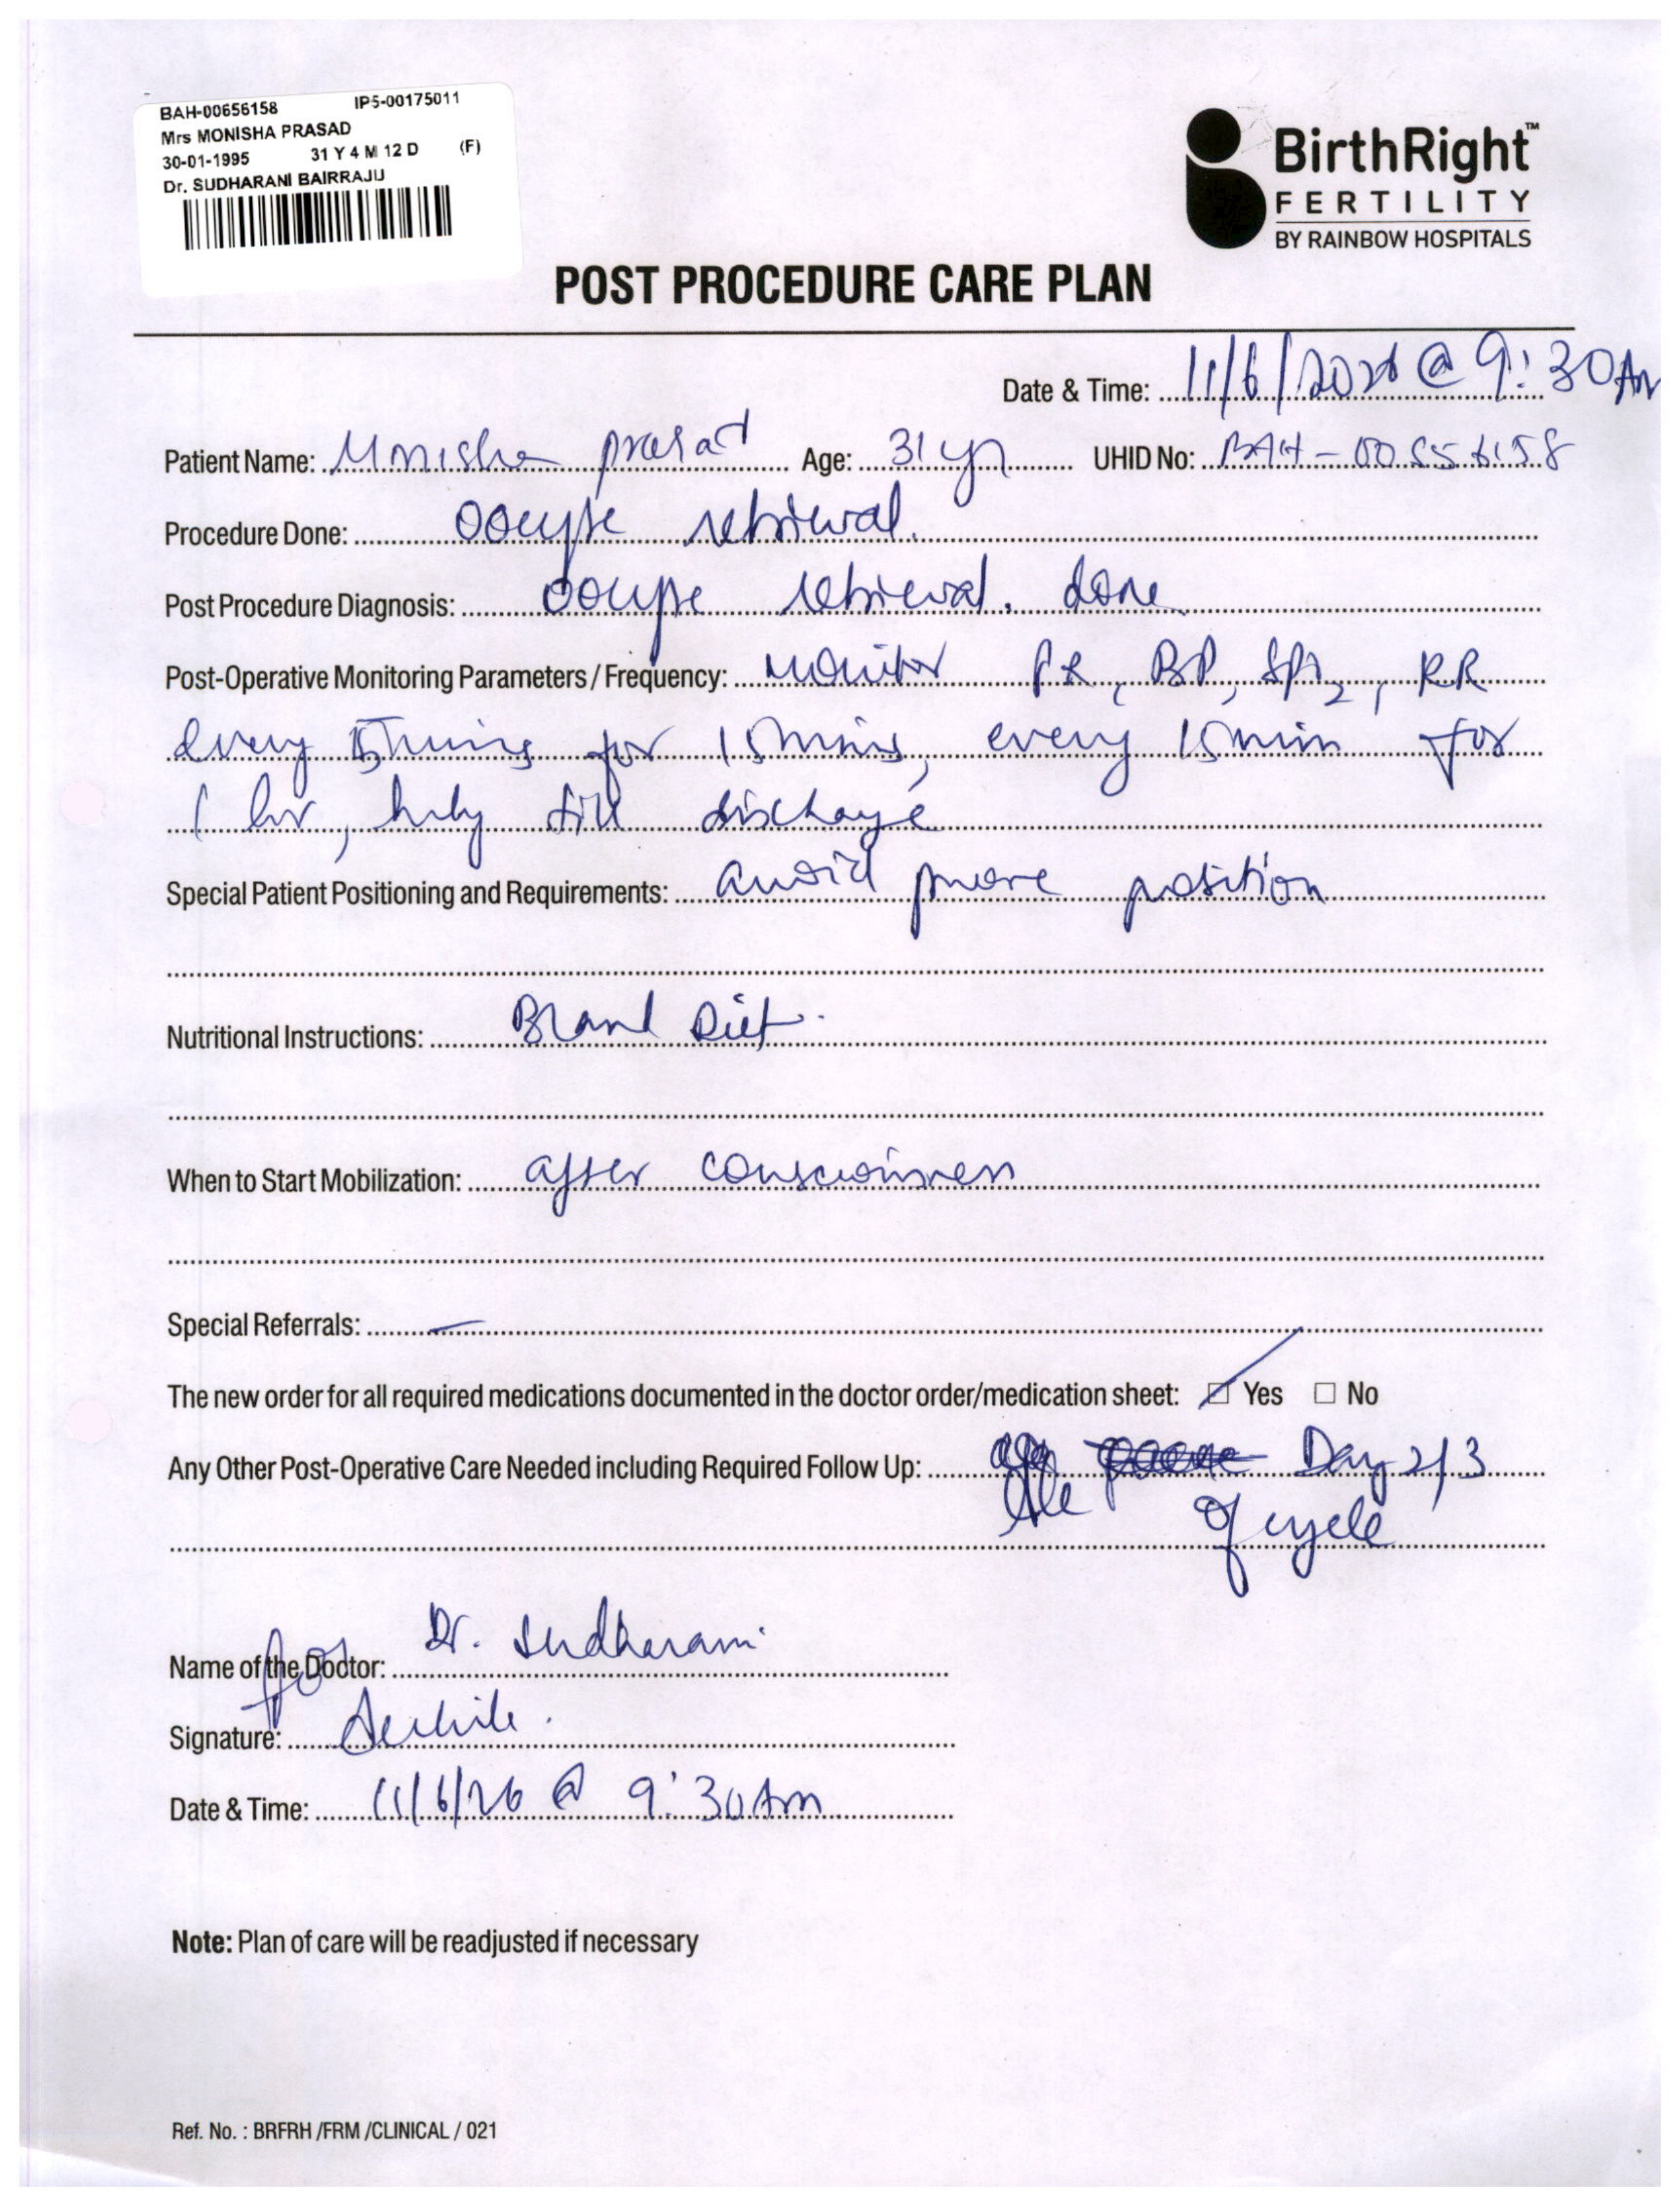 BAH-00656158 IP5-00175011
Mrs MONISHA PRASAD
30-01-1995 31 Y 4 M 12 D (F)
Dr. SUDHARANI BAIRRAJU
BirthRight™
FERTILITY
BY RAINBOW HOSPITALS
POST PROCEDURE CARE PLAN
Date & Time: 11/6/2026 @ 9:30 Am
Patient Name: Monisha prasad Age: 31 yr UHID No: BAH-00656158
Procedure Done: oocyte retrieval.
Post Procedure Diagnosis: oocyte retrieval. done
Post-Operative Monitoring Parameters / Frequency: Monitor PR, BP, SPO2, RR
every 5mins for 15mins, every 15min for
1 hr, hrly till discharge
Special Patient Positioning and Requirements: avoid prone position
Nutritional Instructions: Bland Diet.
When to Start Mobilization: after consciousness
Special Referrals: –
The new order for all required medications documented in the doctor order/medication sheet: ☑ Yes ☐ No
Any Other Post-Operative Care Needed including Required Follow Up: Day 2/3
of cycle
Name of the Doctor: for Dr. Sudharani
Signature:
Date & Time: 11/6/26 @ 9:30 Am
Note: Plan of care will be readjusted if necessary
Ref. No. : BRFRH /FRM /CLINICAL / 021